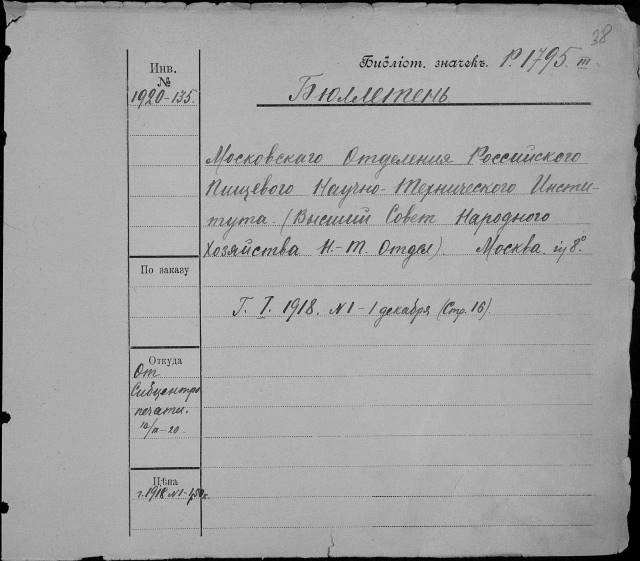 38
Библіот. значекъ. Р. 1795. III.
Инв.
№
1920-135.
Бюллетень
Московскаго Отделения Российского
Пищевого Научно-Технического Инсти-
тута. (Высший Совет Народного
Хозяйства Н.-Т. Отдел). Москва. in 8°.
По заказу
Г. I. 1918. N1 - 1 декабря (Стр. 16).
Откуда
От
Сибцентро
печати.
-20
Цѣна
г. 1918 N1-